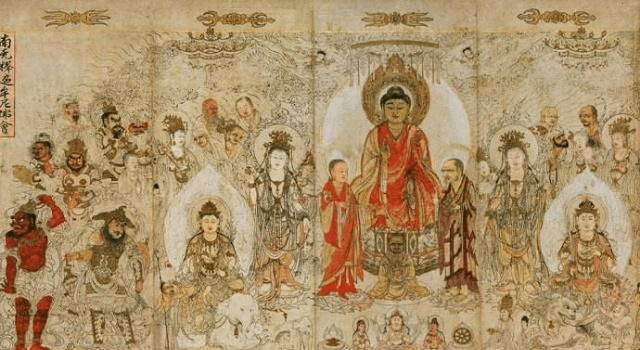 南无釋迦牟尼佛會